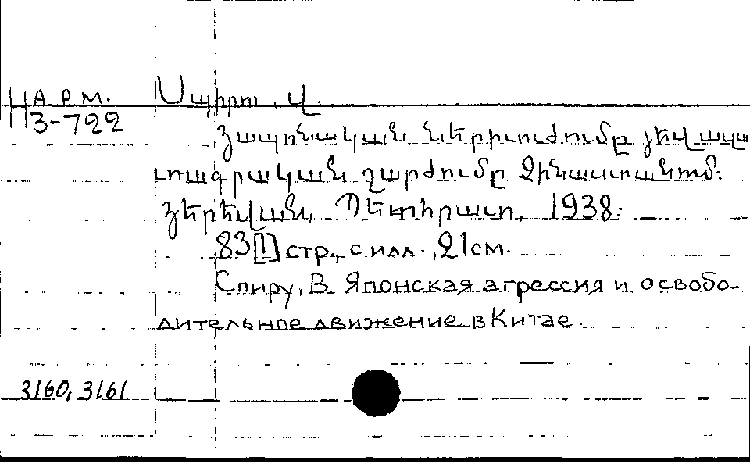 НАРМ.
П3-722
Սպիրտ. Վ.
Յապոնական ներխուժումը յեվ ազա
տագրական շարժումը Չինաստանում.
Յերեվան, Պետհրատ, 1938.
83[1] стр., с илл., 21 см.
Спиру, В. Японская агрессия и освобо-
дительное движение в Китае
3160, 3161